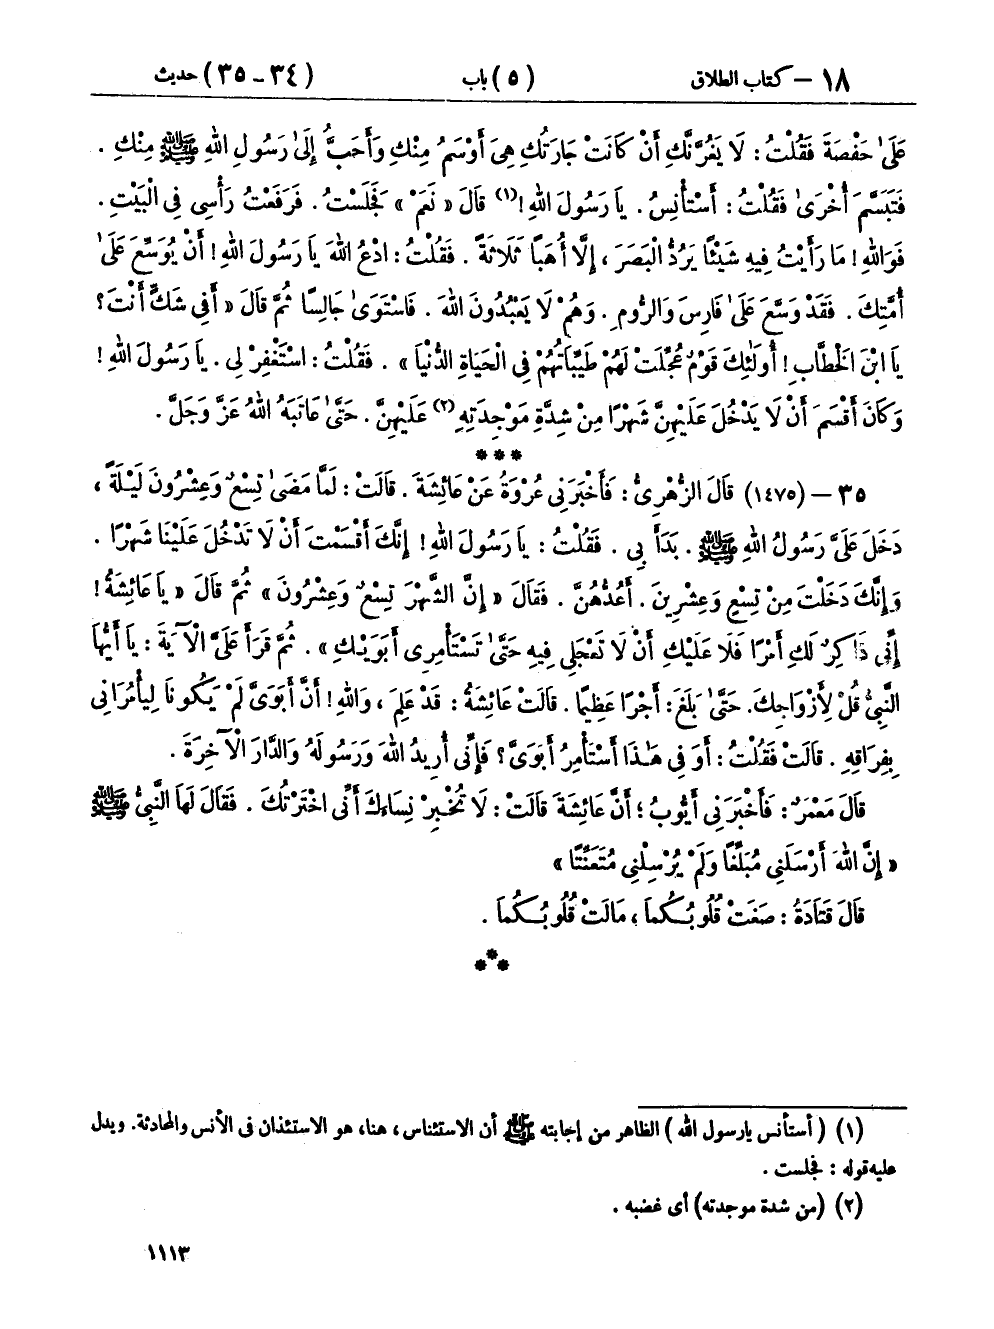 ١٨ – كتاب الطلاق (٥) باب (٣٤ - ٣٥) حديث
عَلَىٰ حَفْصَةَ فَقُلْتُ: لَا يَغُرَّنَّكِ أَنْ كَانَتْ جَارَتُكِ هِىَ أَوْسَمُ مِنْكِ وَأَحَبُّ إِلَىٰ رَسُولِ اللهِ ﷺ مِنْكِ.
فَتَبَسَّمَ أُخْرَىٰ فَقُلْتُ: أَسْتَأْنِسُ. يَا رَسُولَ اللهِ!(١) قَالَ «نَعَمْ» فَجَلَسْتُ. فَرَفَعْتُ رَأْسِى فِى الْبَيْتِ.
فَوَاللهِ! مَا رَأَيْتُ فِيهِ شَيْئًا يَرُدُّ الْبَصَرَ، إِلَّا أُهَبًا ثَلَاثَةً. فَقُلْتُ: ادْعُ اللهَ يَا رَسُولَ اللهِ! أَنْ يُوَسِّعَ عَلَىٰ
أُمَّتِكَ. فَقَدْ وَسَّعَ عَلَىٰ فَارِسَ وَالرُّومِ. وَهُمْ لَا يَعْبُدُونَ اللهَ. فَاسْتَوَىٰ جَالِسًا ثُمَّ قَالَ «أَفِى شَكٍّ أَنْتَ؟
يَا ابْنَ الْخَطَّابِ! أُولَٰئِكَ قَوْمٌ عُجِّلَتْ لَهُمْ طَيِّبَاتُهُمْ فِى الْحَيَاةِ الدُّنْيَا». فَقُلْتُ: اسْتَغْفِرْ لِى. يَا رَسُولَ اللهِ!
وَكَانَ أَقْسَمَ أَنْ لَا يَدْخُلَ عَلَيْهِنَّ شَهْرًا مِنْ شِدَّةِ مَوْجِدَتِهِ(٢) عَلَيْهِنَّ. حَتَّىٰ عَاتَبَهُ اللهُ عَزَّ وَجَلَّ.
***
٣٥ – (١٤٧٥) قَالَ الزُّهْرِىُّ: فَأَخْبَرَنِى عُرْوَةُ عَنْ عَائِشَةَ. قَالَتْ: لَمَّا مَضَىٰ تِسْعٌ وَعِشْرُونَ لَيْلَةً،
دَخَلَ عَلَىَّ رَسُولُ اللهِ ﷺ. بَدَأَ بِى. فَقُلْتُ: يَا رَسُولَ اللهِ! إِنَّكَ أَقْسَمْتَ أَنْ لَا تَدْخُلَ عَلَيْنَا شَهْرًا.
وَإِنَّكَ دَخَلْتَ مِنْ تِسْعٍ وَعِشْرِينَ. أَعُدُّهُنَّ. فَقَالَ «إِنَّ الشَّهْرَ تِسْعٌ وَعِشْرُونَ» ثُمَّ قَالَ «يَا عَائِشَةُ!
إِنِّى ذَاكِرٌ لَكِ أَمْرًا فَلَا عَلَيْكِ أَنْ لَا تَعْجَلِى فِيهِ حَتَّىٰ تَسْتَأْمِرِى أَبَوَيْكِ». ثُمَّ قَرَأَ عَلَىَّ الْآيَةَ: يَا أَيُّهَا
النَّبِىُّ قُلْ لِأَزْوَاجِكَ. حَتَّىٰ بَلَغَ: أَجْرًا عَظِيمًا. قَالَتْ عَائِشَةُ: قَدْ عَلِمَ، وَاللهِ! أَنَّ أَبَوَىَّ لَمْ يَكُونَا لِيَأْمُرَانِى
بِفِرَاقِهِ. قَالَتْ فَقُلْتُ: أَوَ فِى هَٰذَا أَسْتَأْمِرُ أَبَوَىَّ؟ فَإِنِّى أُرِيدُ اللهَ وَرَسُولَهُ وَالدَّارَ الْآخِرَةَ.
قَالَ مَعْمَرٌ: فَأَخْبَرَنِى أَيُّوبُ؛ أَنَّ عَائِشَةَ قَالَتْ: لَا تُخْبِرْ نِسَاءَكَ أَنِّى اخْتَرْتُكَ. فَقَالَ لَهَا النَّبِىُّ ﷺ
«إِنَّ اللهَ أَرْسَلَنِى مُبَلِّغًا وَلَمْ يُرْسِلْنِى مُتَعَنِّتًا»
قَالَ قَتَادَةُ: صَغَتْ قُلُوبُكُمَا، مَالَتْ قُلُوبُكُمَا.
***
(١) (أستأنس يارسول الله) الظاهر من إجابته ﷺ أن الاستئناس، هنا، هو الاستئذان فى الأنس والمحادثة. ويدل
عليه قوله: فجلست.
(٢) (من شدة موجدته) أى غضبه.
١١١٣